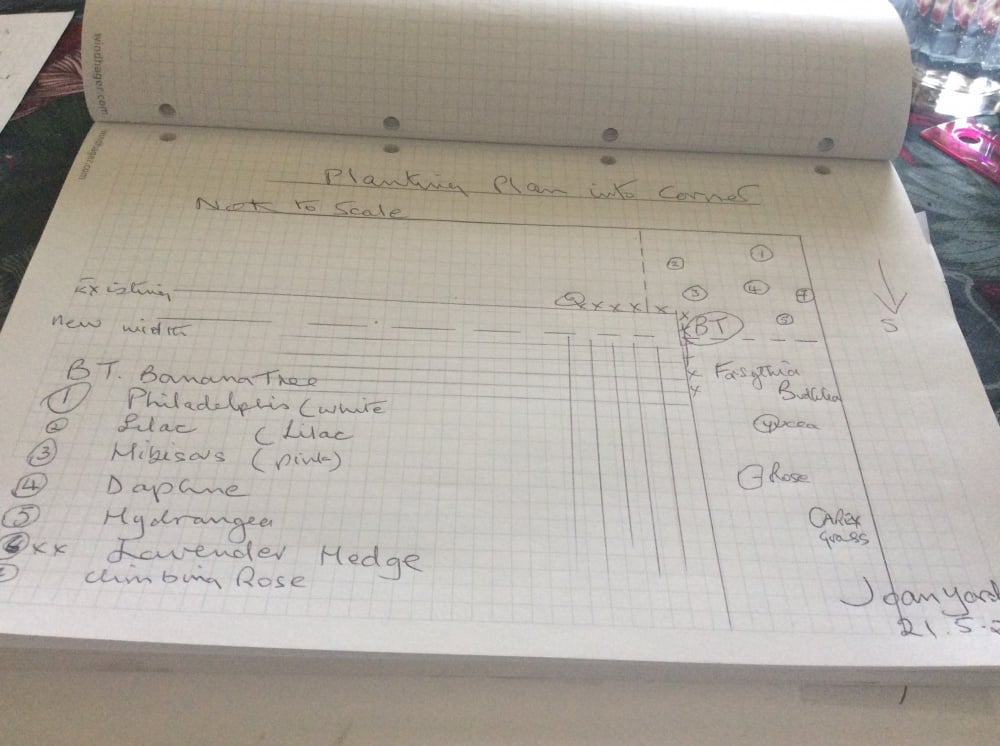 windhager.com
windhager.com
Planting Plan into Corner
Not to Scale
1
2
3
4
7
5
Existing
x x x x x
x
BT
S
new width
x
x
Forsythia
Buddlea
Yucca
Rose
CAREX
Grass
BT. Banana Tree
1 Philadelphis (white
2 Lilac (Lilac
3 Hibiscus (pink)
4 Daphne
5 Hydrangea
6 xx Lavender Hedge
Climbing Rose
21.5.